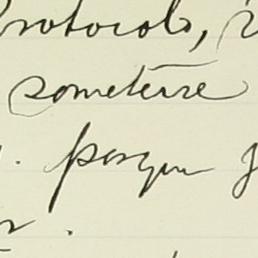 Protocolo,
someterse
porque